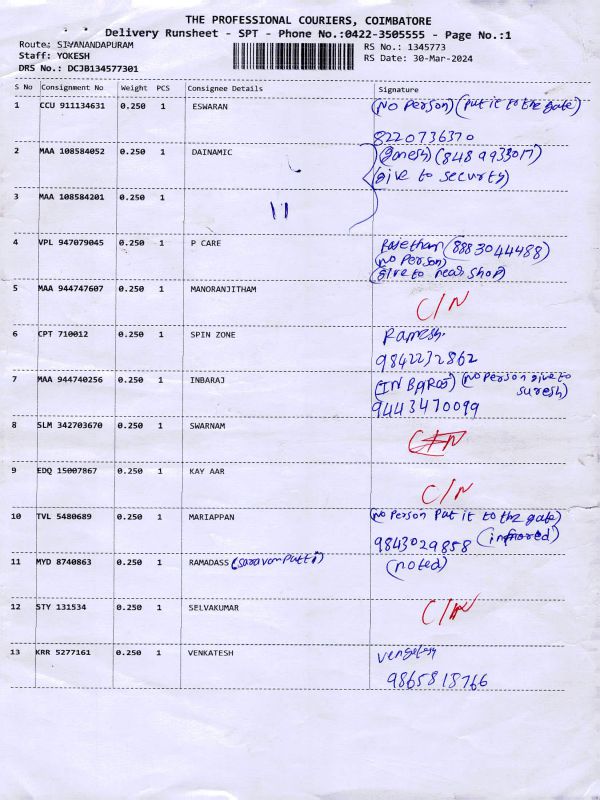 THE PROFESSIONAL COURIERS, COIMBATORE
Delivery Runsheet - SPT - Phone No.:0422-3505555 - Page No.:1
Route: SIVANANDAPURAM
Staff: YOKESH
DRS No.: DCJB134577301
RS No.: 1345773
RS Date: 30-Mar-2024
S No Consignment No Weight PCS Consignee Details Signature
1 CCU 911134631 0.250 1 ESWARAN (No Person) (put it to the gate)
8220736370
2 MAA 108584052 0.250 1 DAINAMIC (Ganesh) (8489933017)
(give to security)
3 MAA 108584201 0.250 1 11
4 VPL 947079045 0.250 1 P CARE (8883044488)
(no person)
(give to near shop)
5 MAA 944747607 0.250 1 MANORANJITHAM C/N
6 CPT 710012 0.250 1 SPIN ZONE Ramesh.
9842232862
7 MAA 944740256 0.250 1 INBARAJ (INBARAJ) (no person give to
suresh)
9443470099
8 SLM 342703670 0.250 1 SWARNAM C/N
9 EDQ 15007867 0.250 1 KAY AAR C/N
10 TVL 5480689 0.250 1 MARIAPPAN (no person put it to the gate)
9843029858 (informed)
11 MYD 8740863 0.250 1 RAMADASS (saravanpatti) (noted)
12 STY 131534 0.250 1 SELVAKUMAR C/N
13 KRR 5277161 0.250 1 VENKATESH
9865818766